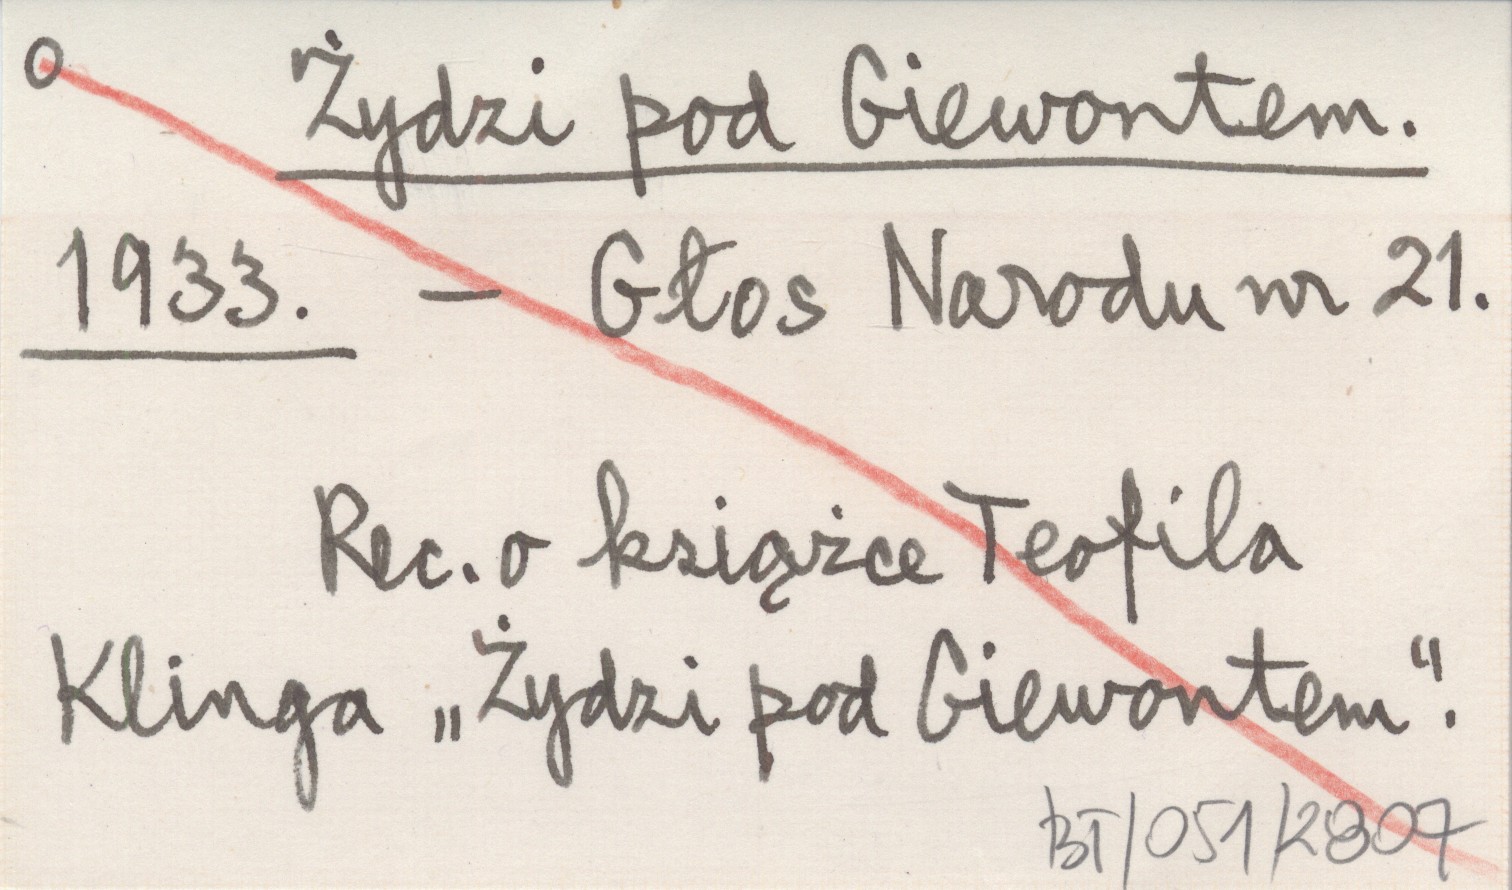 o Żydzi pod Giewontem.
1933. — Głos Narodu nr 21.
Rec. o książce Teofila
Klinga „Żydzi pod Giewontem".
BT/051/2807